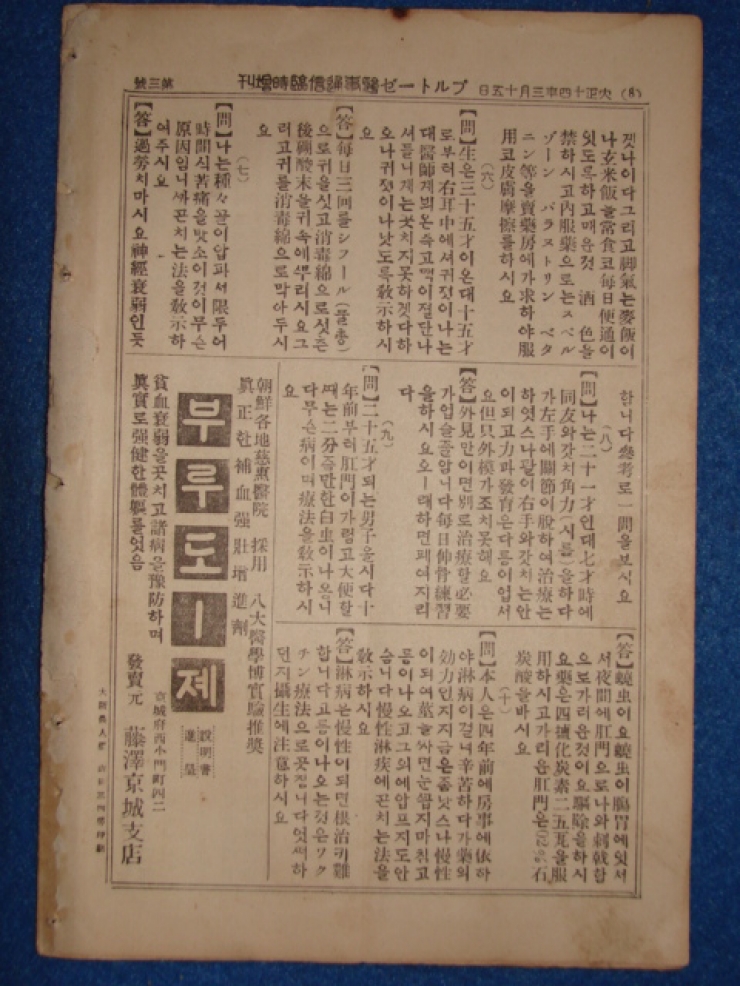 (8) 大正十四年三月十五日 ブルトーゼ醫事通信臨時增刊 第三號
젯나이다그리고脚氣는麥飯이
나玄米飯늘常食코每日便通이
잇도록하고매운것 酒 色을
禁하시고內服藥으로는スベル
ゾーン パラヌトリン ベタ
ニン等을賣藥房에가求하야服
用코皮膚摩擦를하시요
(六)
【問】生은三十五才이온대十五才
로부터右耳中에셔귀젓이나는
대醫師게뵈온즉고택이졀단나
셔틀니게는곳치지못하겟다하
오나귀젓이나낫도록敎示하시
요
【答】每日三回를シフール(물총)
으로귀을싯고消毒綿으로싯츤
後硼酸末을귀속에뿌리시요그
러고귀를消毒綿으로막아두시
요
(七)
【問】나는種々골이압파셔限두어
時間식苦痛을맛소이것이무슨
原因임니까곤치는法을敎示하
여주시요
【答】過勞치마시요神經衰弱인듯
합니다參考로一問을보시요
(八)
【問】나는二十一才인대七才時에
同友와갓치角力(시름)을하다
가左手에關節이脫하여治療는
하엿스나팔이右手와갓치는안
이되고力파發育은다름이업서
요但只外模가조치못해요
【答】外見만이면別로治療할必要
가업슬줄암니다每日伸骨練習
을하시요오ー래하면페여지리
다
(九)
【問】二十五才되는男子올시다十
年前부터肛門이가렵고大便할
때는二分즘만한白虫이나옴니
다무슨病이며療法을敎示하시
요
【答】蟯虫이요蟯虫이腸胃에잇셔
셔夜間에肛門으로나와刺戟함
으로가려운것이요驅除을하시
요藥은四塩化炭素二五瓦을服
用하시고가리운肛門은02%石
炭酸을바시요
(十)
【問】本人은四年前에房事에依하
야淋病이걸녀辛苦하다가藥의
効力인지지금은좀낫스나慢性
이되여莖눌싸면눈쌉지마침고
름이나오고그외에암프지도안
슴니다慢性淋疾에곤치는法을
敎示하시요
【答】淋病은慢性이되면根治키難
합니다고름이나오는것은ワク
チン療法으로곳짐니다엇쩌하
던지攝生에注意하시요
朝鮮各地慈惠醫院 採用 八大醫學博實驗推奬
眞正한補血强壯增進劑
부루토ー제
說明書
進呈
貧血衰弱을곳치고諸病을豫防하며
眞實로强健한體軀를엇음
京城府西小門町四二
發賣元 藤澤京城支店